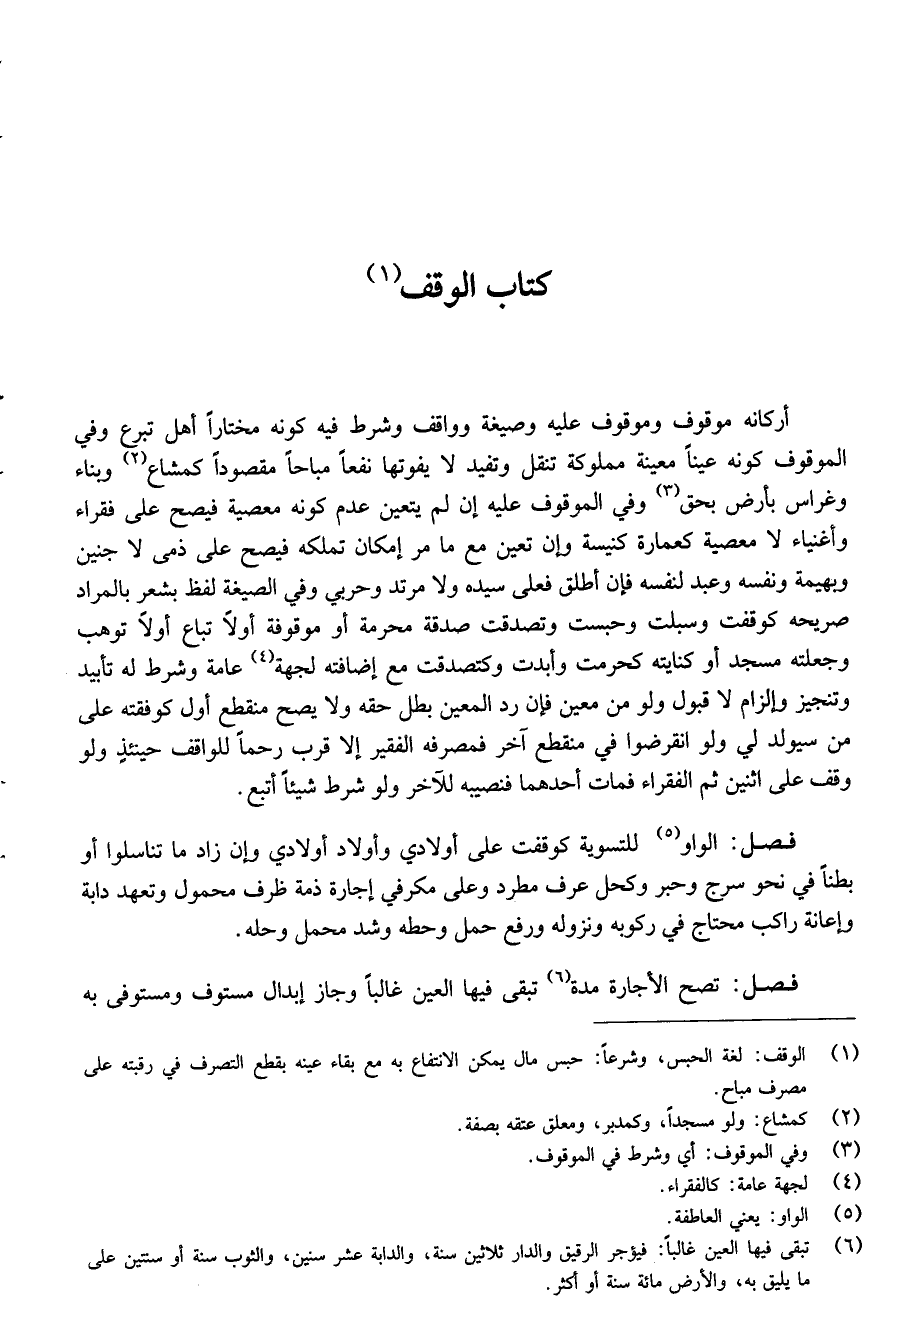 كتاب الوقف(١)
أركانه موقوف وموقوف عليه وصيغة وواقف وشرط فيه كونه مختاراً أهل تبرع وفي
الموقوف كونه عيناً معينة مملوكة تنقل وتفيد لا يفوتها نفعاً مباحاً مقصوداً كمشاع(٢) وبناء
وغراس بأرض بحق(٣) وفي الموقوف عليه إن لم يتعين عدم كونه معصية فيصح على فقراء
وأغنياء لا معصية كعمارة كنيسة وإن تعين مع ما مر إمكان تملكه فيصح على ذمى لا جنين
وبهيمة ونفسه وعبد لنفسه فإن أطلق فعلى سيده ولا مرتد وحربي وفي الصيغة لفظ بشعر بالمراد
صريحه كوقفت وسبلت وحبست وتصدقت صدقة محرمة أو موقوفة أولاً تباع أولاً توهب
وجعلته مسجد أو كنايته كحرمت وأبدت وكتصدقت مع إضافته لجهة(٤) عامة وشرط له تأبيد
وتنجيز وإلزام لا قبول ولو من معين فإن رد المعين بطل حقه ولا يصح منقطع أول كوفقته على
من سيولد لي ولو انقرضوا في منقطع آخر فمصرفه الفقير إلا قرب رحماً للواقف حينئذٍ ولو
وقف على اثنين ثم الفقراء فمات أحدهما فنصيبه للآخر ولو شرط شيئاً أتبع.
فصل: الواو(٥) للتسوية كوقفت على أولادي وأولاد أولادي وإن زاد ما تناسلوا أو
بطناً في نحو سرج وحبر وكحل عرف مطرد وعلى مكرفي إجارة ذمة ظرف محمول وتعهد دابة
وإعانة راكب محتاج في ركوبه ونزوله ورفع حمل وحطه وشد محمل وحله.
فصل: تصح الأجارة مدة(٦) تبقى فيها العين غالباً وجاز إبدال مستوف ومستوفى به
(١) الوقف: لغة الحبس، وشرعاً: حبس مال يمكن الانتفاع به مع بقاء عينه بقطع التصرف في رقبته على
مصرف مباح.
(٢) كمشاع: ولو مسجداً، وكمدبر، ومعلق عتقه بصفة.
(٣) وفي الموقوف: أي وشرط في الموقوف.
(٤) لجهة عامة: كالفقراء.
(٥) الواو: يعني العاطفة.
(٦) تبقى فيها العين غالباً: فيؤجر الرقيق والدار ثلاثين سنة، والدابة عشر سنين، والثوب سنة أو سنتين على
ما يليق به، والأرض مائة سنة أو أكثر.